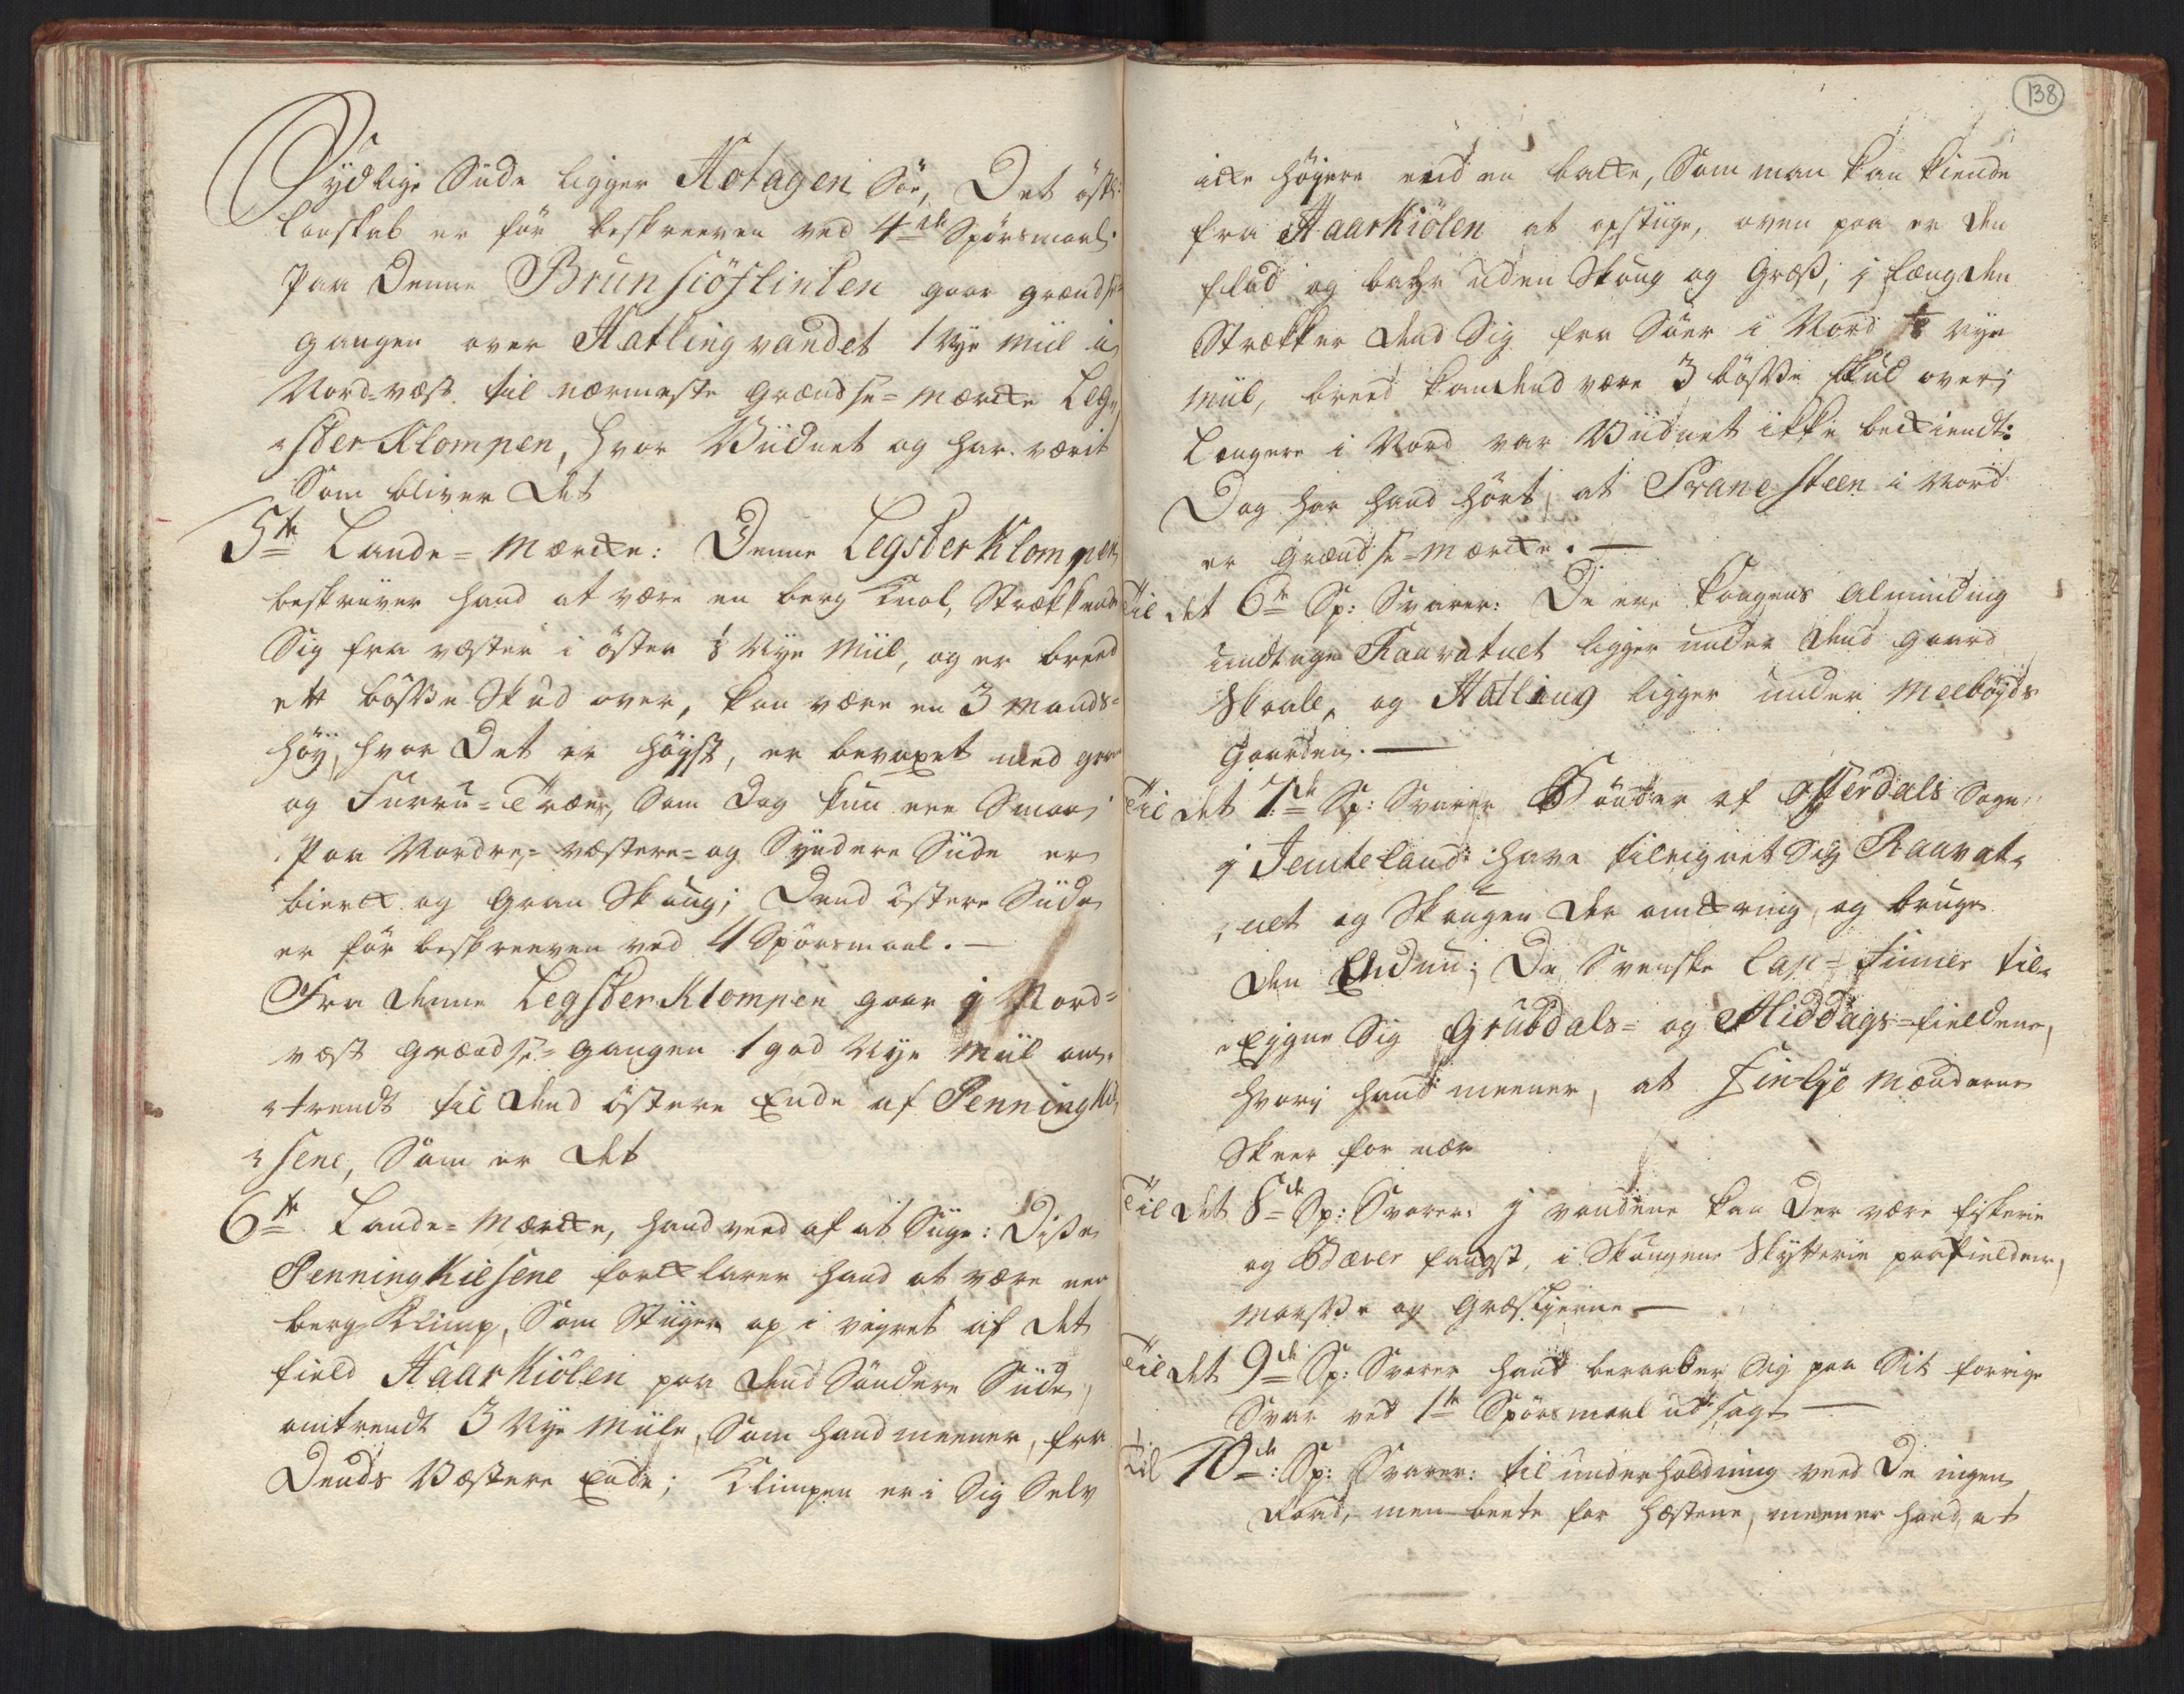 Sydlige Siide ligger Hotagen Söe, Det öst:
Landskab er för beskreeven ved 4de Spörsmaal.
Paa Denne Brunsiöflinten gaar grændse
gangen over Hatlingvandet 1 Nye Miil i
Nord-væst til nærmeste Grændse-Mærcke Leg,,
,,sterKlompen, hvor Viidnet og har værit
Som bliver Det
5te Lande-Mærcke: Denne LegsterKlompen
beskriver hand at være en berg Knol, Strækkende
Sig fra væster i öster ⅛ Nye Miil, og er breed
ett bösse Skud over, kan være en 3 Mands-
höy, hvor Det er höyst, er bevoxet med gran
og Furru-Træer, Som Dog kun ere Smaa;
Paa Nordre,- væstere- og Syndere Siide er
bierck og Gran Skoug; Dend östere Siide
er för beskreeven ved 4 Spörsmaal. —
Fra denne LegsterKlompen gaar j Nord-
væst grændse-gangen 1 god Nye Miil om-
,,trendt til dend östere Ende af PenningKie,
,,sene, Som er Det
6te Lande-Mærcke, hand veed af at Siige: Disse
PenningKiesene forcklarer hand at være en
berg Klimp, Som Stiiger op i veyret af Det
field HaarKiölen paa dend Söndere Siide,
omtrendt 3 Nye Miile, Som hand meener, fra
Dends Væstere Ende; Klimpen er i Sig Selv
138
icke höyere end en backe, Som man kan kiende
fra HaarKiölen at opstiige, oven paa er den
flad og bahr uden Skoug og Græs, j Længden
Strækker dend Sig fra Söer i Nord ⅛ nye
Miil, breed kan dend være 3 bösse skud over;
Længere i Nord var Viidnet ikke beckiendt:
Dog har hand hört, at Brane steen i Nord
er Grændse-Mærcke. —
Til det 6te Sp: Svarer: De ere Kongens Alminding
undtagen Raavatnet ligger under dend gaard
Skaale, og Hatling ligger under Meebÿds
Gaarden. —
Til det 7de Sp: Svarer Bönder af Offerdals Sogn
j Jemteland have tilegnet Sig Raavat,
,,net og Skougen der omckring, og bruge
den Endnu; De Svenske Lap-Finner til,
,,Eygne Sig Grubdals- og Middags-fieldene,
hvorj hand meener, at Finlje Mændene
Skeer for nær
Til det 8de Sp: Svarer: J vandene kan Der være fiskerie
og Bæver fangst, i Skougene Skytterie paa fieldene,
Maasse og Græsgierne —
Til det 9de Sp: Svarer hand beraaber Sig paa Sit forrige
Svar ved 1te Spörsmaal udsagt —
Til 10de: Sp: Svarer: til underholdning veed De ingen
Raad, men beete for Hæstene, meener hand, at